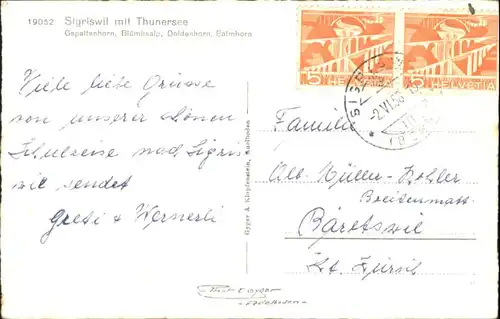 19052 Sigriswil mit Thunersee
Gspaltenhorn, Blümlisalp, Doldenhorn, Balmhorn
Viele liebe Grüsse
von unserer schönen
Schulreise nach Sigris
wil sendet
Greti & Wernerli
5 HELVETIA
5 HELVETIA
2.VI.53
Familie
Alb. Müller-Kohler
Breitenmatt
Bäretswil
Kt. Zürich
Gyger & Klopfenstein, Adelboden
Gyger
ADELBODEN